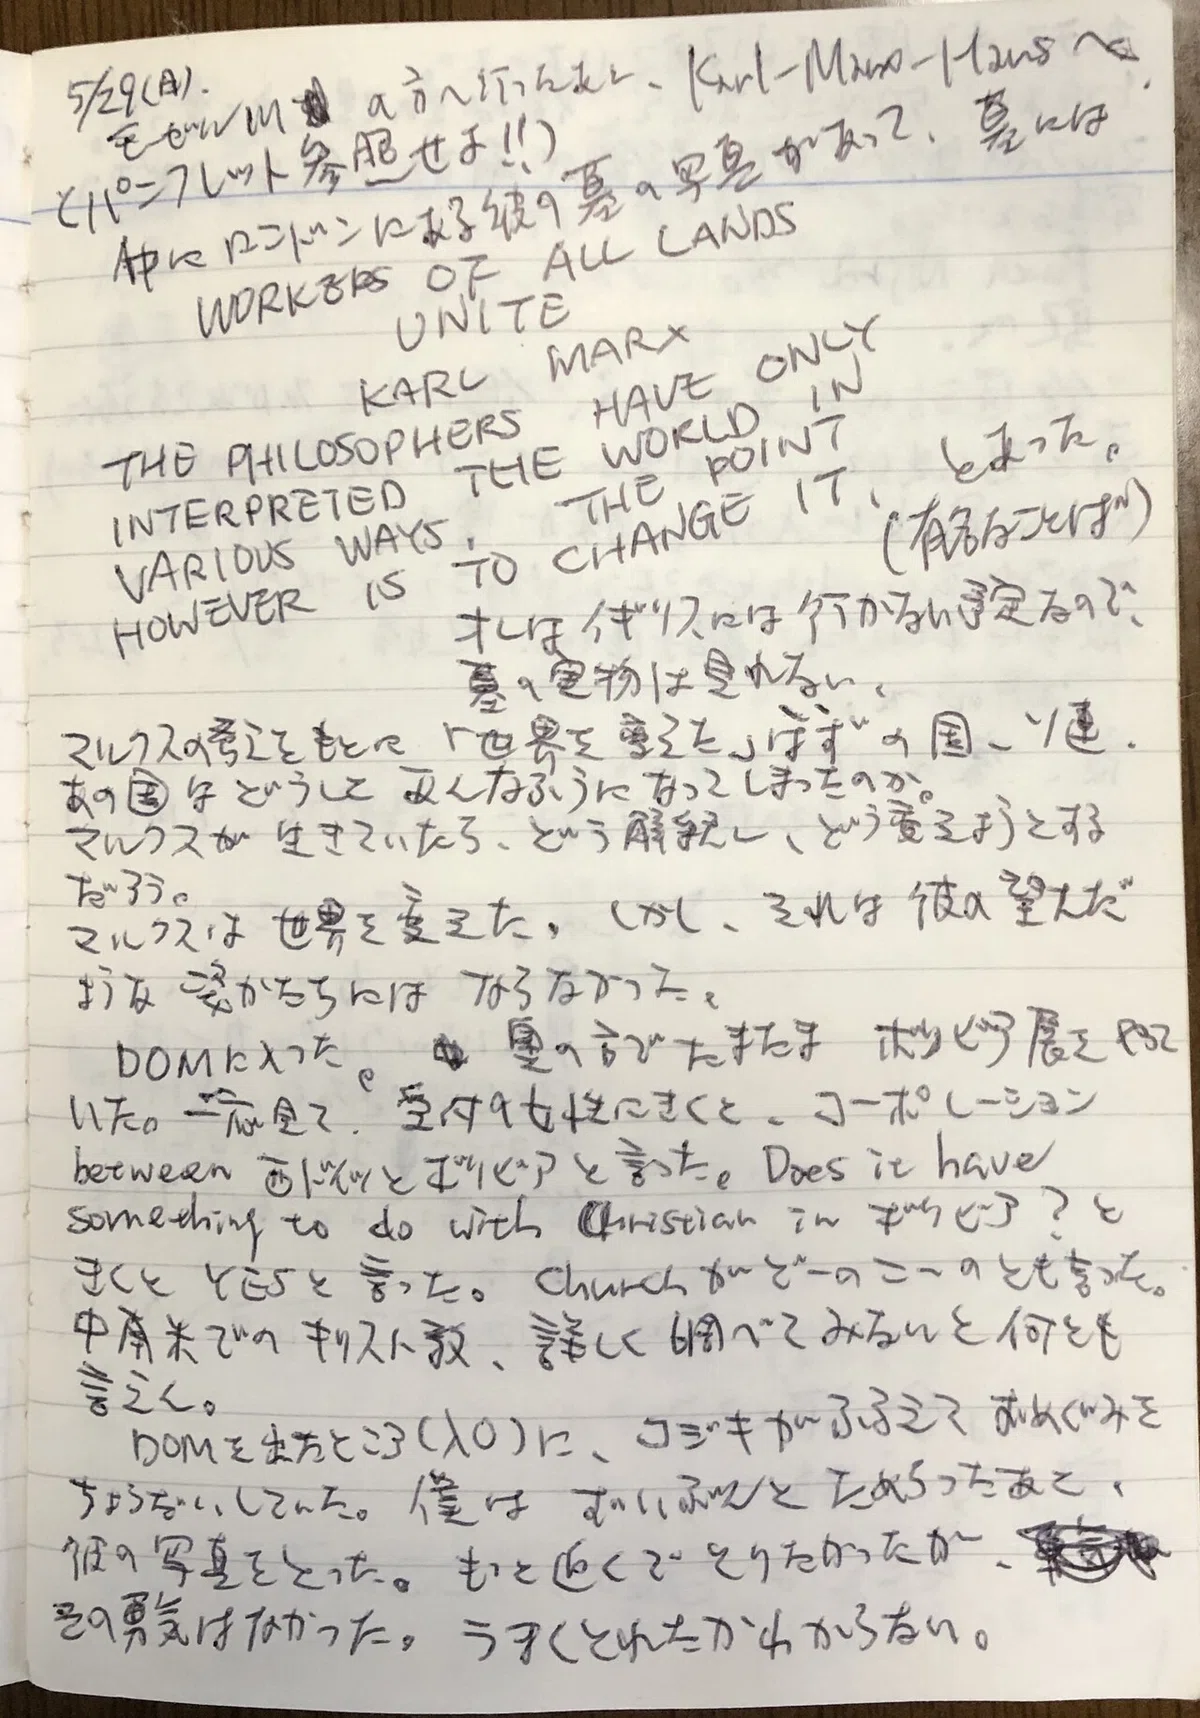 5/29(月).
モーゼル川の方へ行ったあと、Karl-Marx-Hausへ.
(パンフレット参照せよ!!)
中にロンドンにある彼の墓の写真があって、墓には
WORKERS OF ALL LANDS
UNITE
KARL MARX
THE PHILOSOPHERS HAVE ONLY
INTERPRETED THE WORLD IN
VARIOUS WAYS. THE POINT
HOWEVER IS TO CHANGE IT. とあった。
(有名なことば)
オレはイギリスには行かない予定なので、
墓の実物は見れない、
マルクスの考えをもとに「世界を変えた」はずの国、ソ連.
あの国はどうしてあんなふうになってしまったのか。
マルクスが生きていたら、どう解釈し、どう変えようとする
だろう。
マルクスは世界を変えた。しかし、それは彼の望んだ
ような姿かたちにはならなかった。
DOMに入った。 奥の方でたまたまボリビア展をやって
いた。一応見て、受付の女性にきくと、コーポレーション
between 西ドイツとボリビアと言った。Does it have
something to do with Christian in ボリビア?と
きくとYESと言った。Churchがどーのこーのとも言った。
中南米でのキリスト教、詳しく調べてみないと何とも
言えん。
DOMを出たところ(入口)に、コジキがふるえておめぐみを
ちょうだいしていた。僕はずいぶんとためらったあと、
彼の写真をとった。もっと近くでとりたかったが、
その勇気はなかった。うまくとれたかわからない。